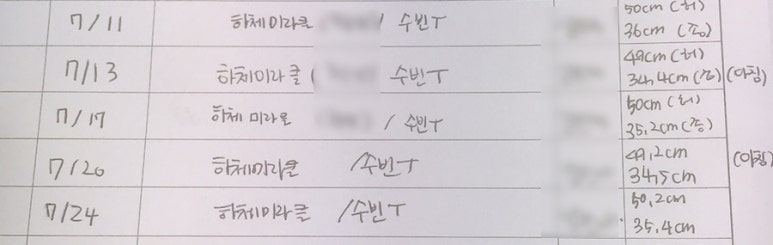 50cm (허)
7/11 하체미라클 / 수빈T 36cm (종)
49cm (허)
7/13 하체미라클 ( 수빈T 34,4cm (종) (아침)
50cm (허)
7/17 하체 미라클 / 수빈T 35,2cm (종)
49,2cm
7/20 하체미라클 /수빈T 34,5cm (아침)
50,2cm
7/24 하체미라클 /수빈T 35.4cm